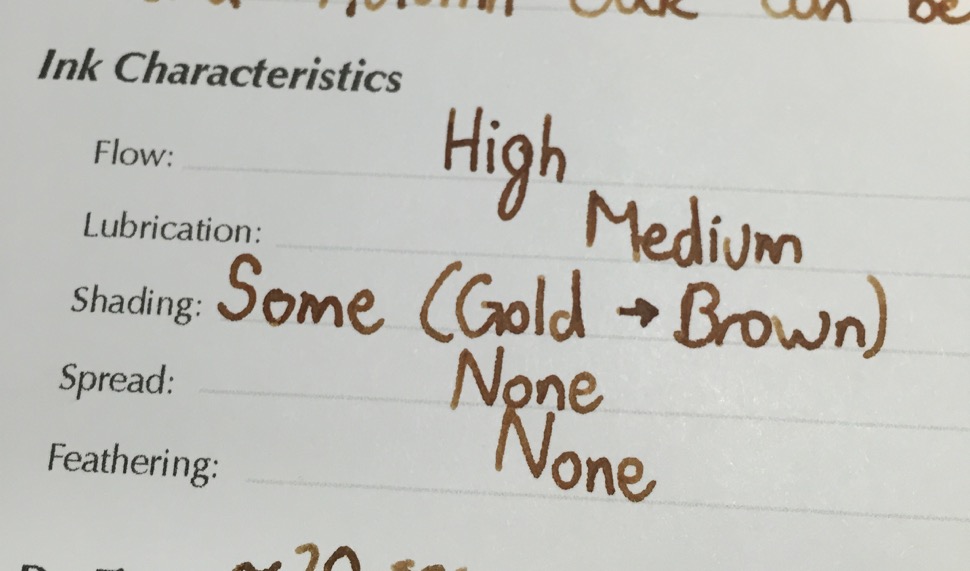 Autumn Oak can be
Ink Characteristics
Flow: High
Lubrication: Medium
Shading: Some (Gold → Brown)
Spread: None
Feathering: None
20